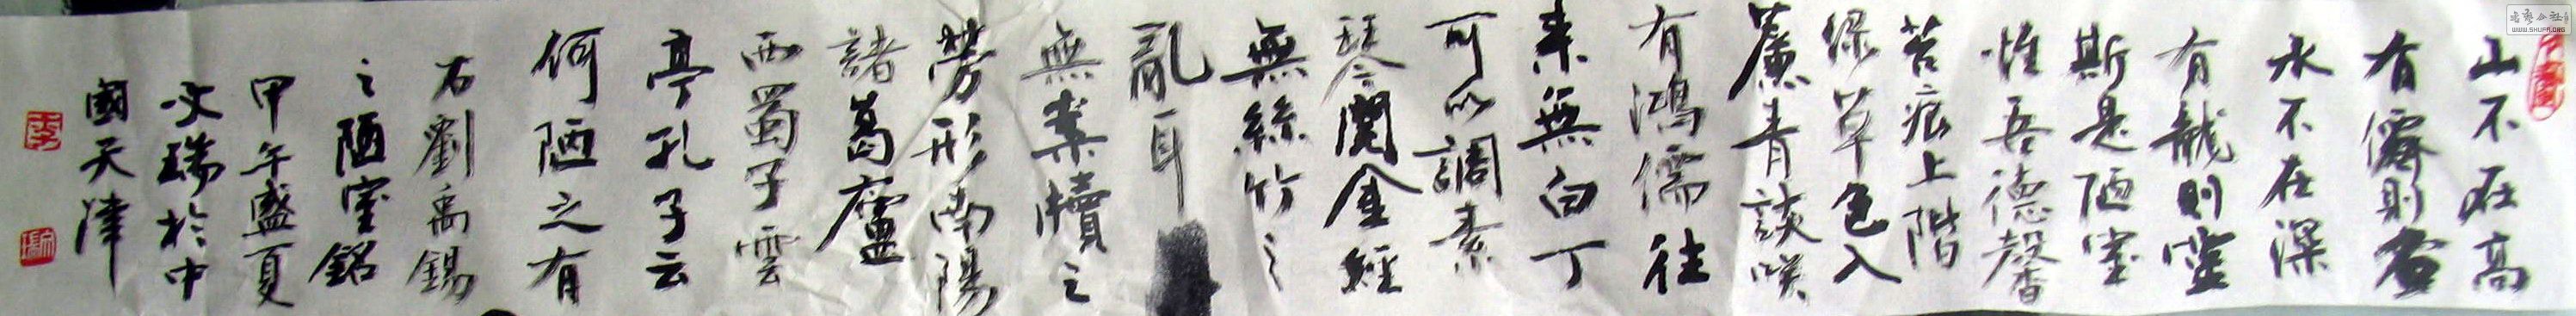 山不在高
有僊則名
水不在深
有龍則靈
斯是陋室
惟吾德馨
苔痕上階
綠草色入
簾青談笑
有鴻儒往
來無白丁
可以調素
琴閱金經
無絲竹之
亂耳
無案牘之
勞形南陽
諸葛廬
西蜀子雲
亭孔子云
何陋之有
右劉禹錫
之陋室銘
甲午盛夏
文瑞於中
國天津
WWW.SHUFA.ORG